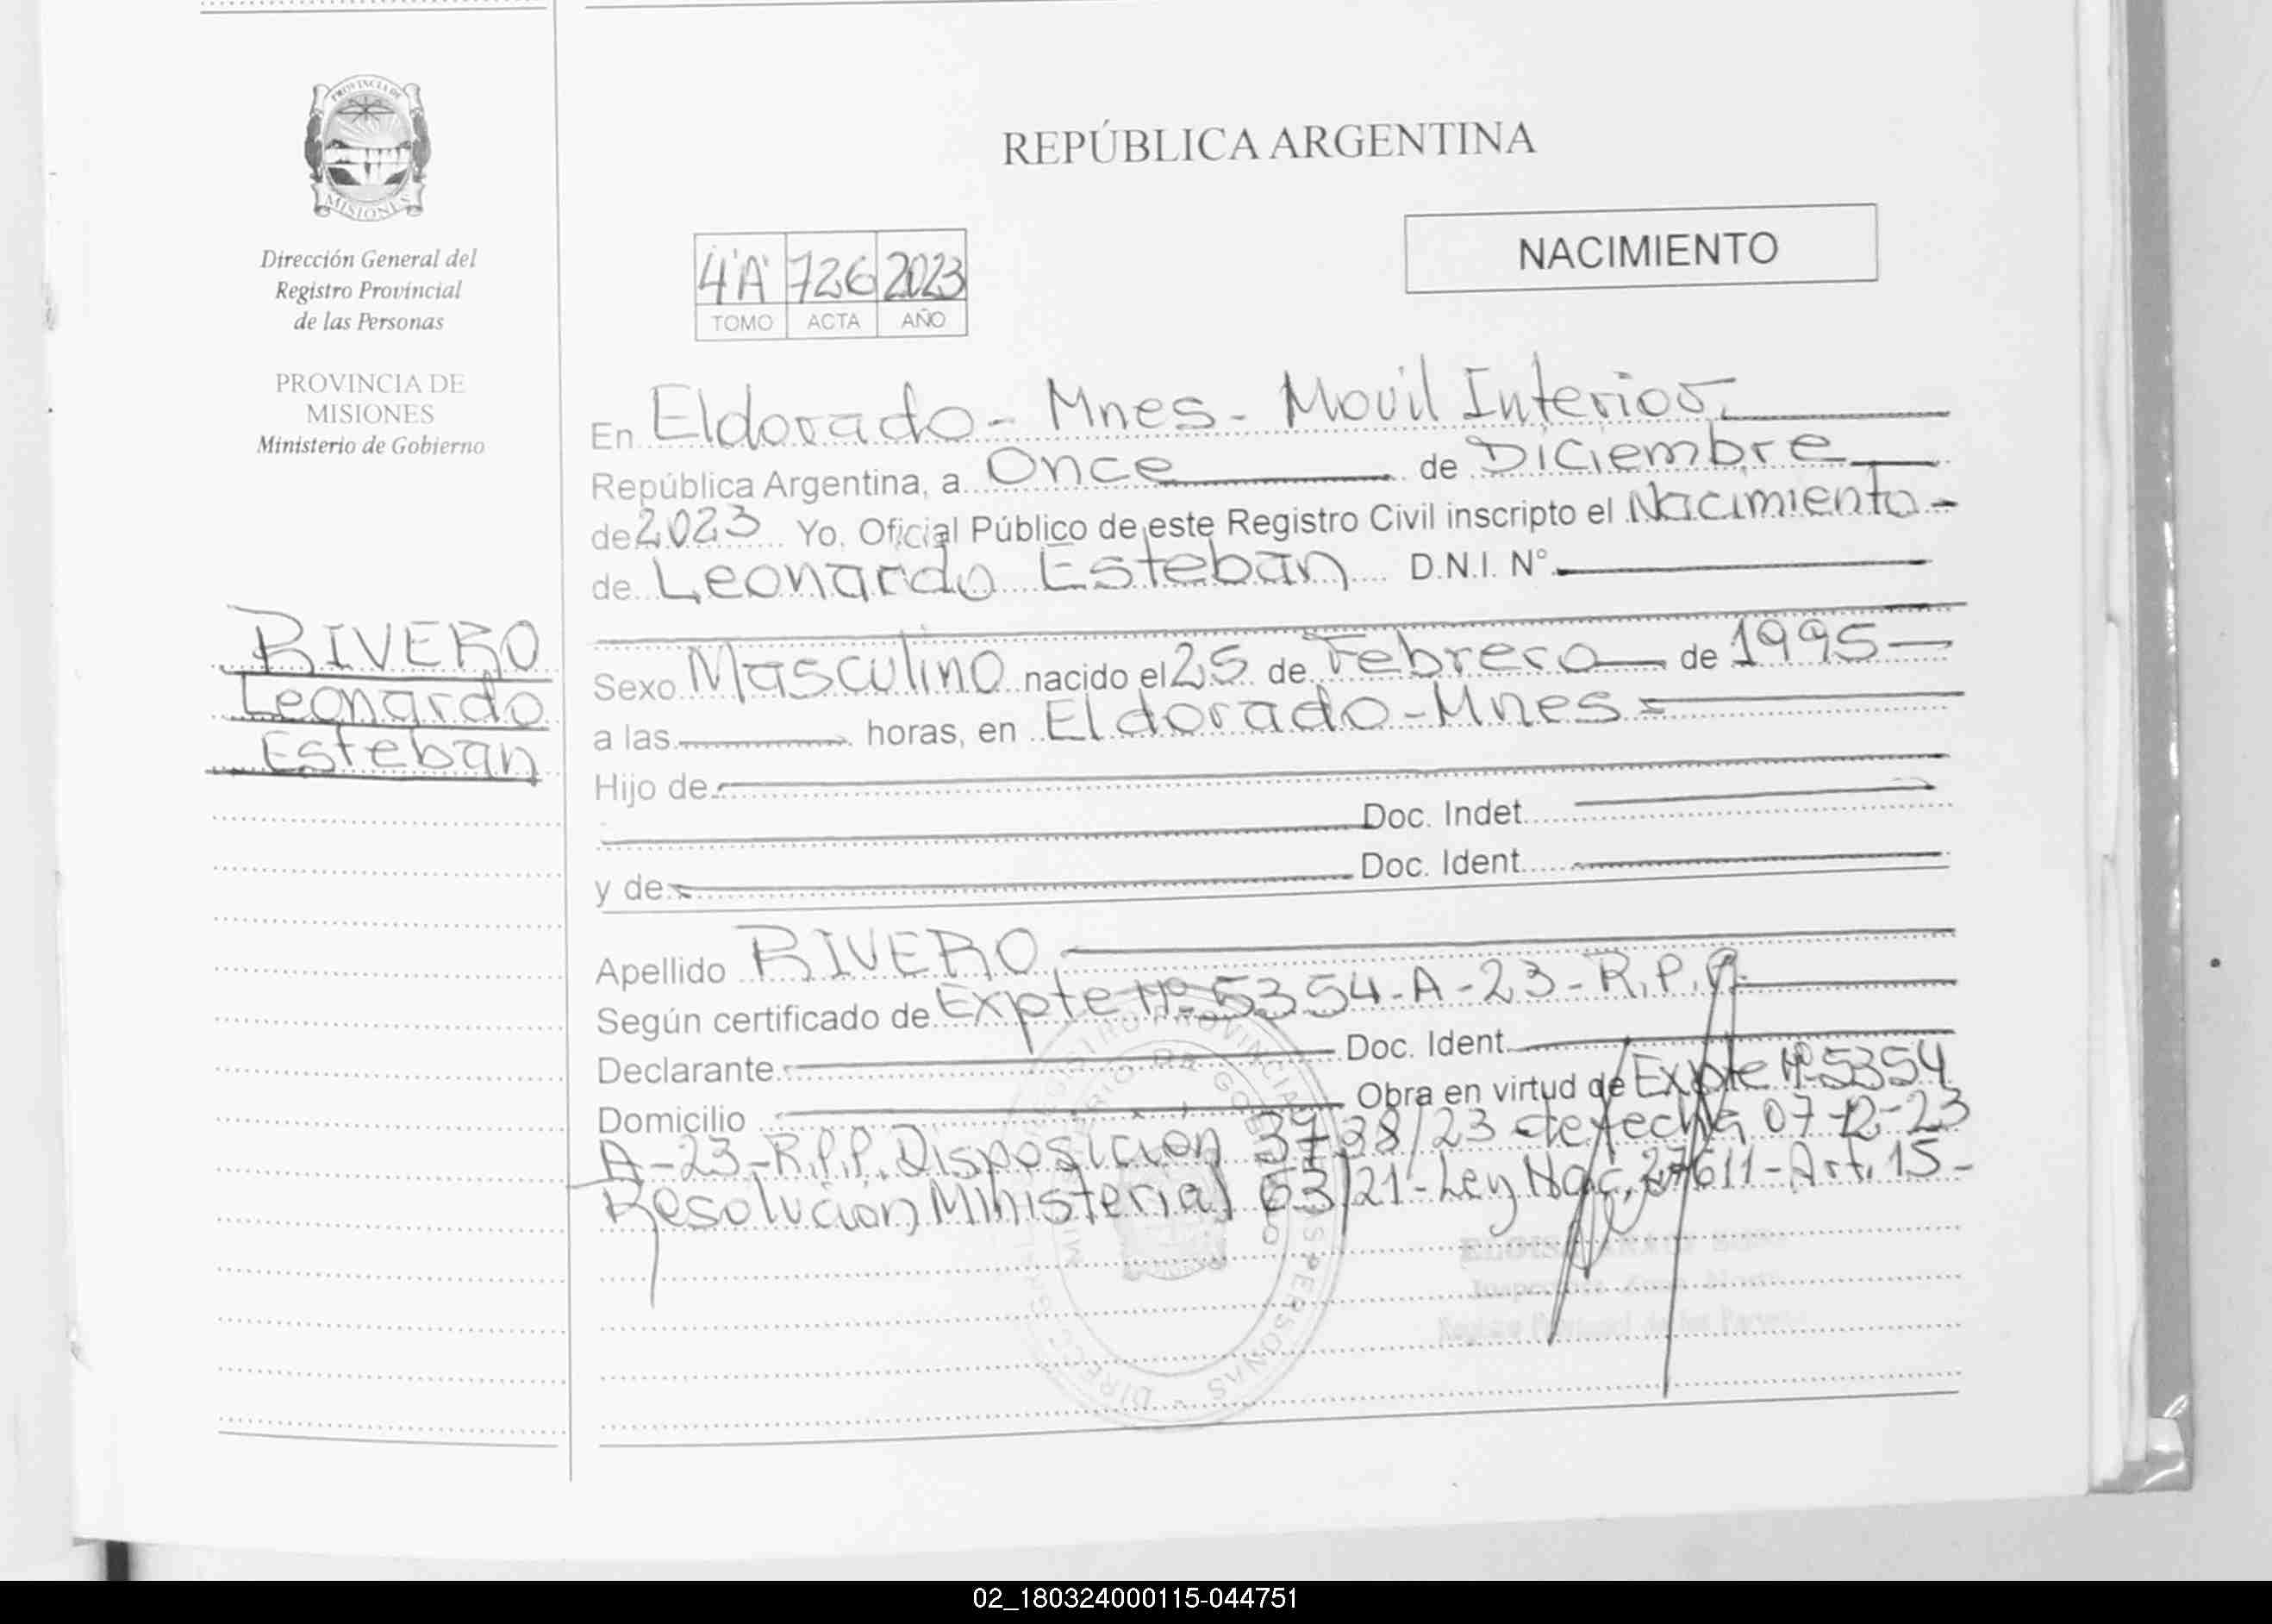 PROVINCIA DE
MISIONES
Dirección General del
Registro Provincial
de las Personas
PROVINCIA DE
MISIONES
Ministerio de Gobierno
RIVERO
Leonardo
Esteban
REPÚBLICA ARGENTINA
NACIMIENTO
4'A' 726 2023
TOMO ACTA AÑO
En Eldorado - Mnes - Movil Interior.
República Argentina, a Once de Diciembre
de 2023 Yo, Oficial Público de este Registro Civil inscripto el Nacimiento -
de Leonardo Esteban D.N.I. N°
Sexo Masculino nacido el 25 de Febrero de 1995
a las horas, en Eldorado - Mnes
Hijo de
Doc. Indet.
y de Doc. Ident.
Apellido RIVERO
Según certificado de Expte Nº 5354-A-23-R.P.P.
Declarante Doc. Ident.
Domicilio Obra en virtud de Expte Nº 5354
A-23-R.P.P. Disposición 3738/23 de fecha 07-12-23
Resolución Ministerial 63/21 - Ley Nac. 27611 - Art. 15 -
02_180324000115-044751